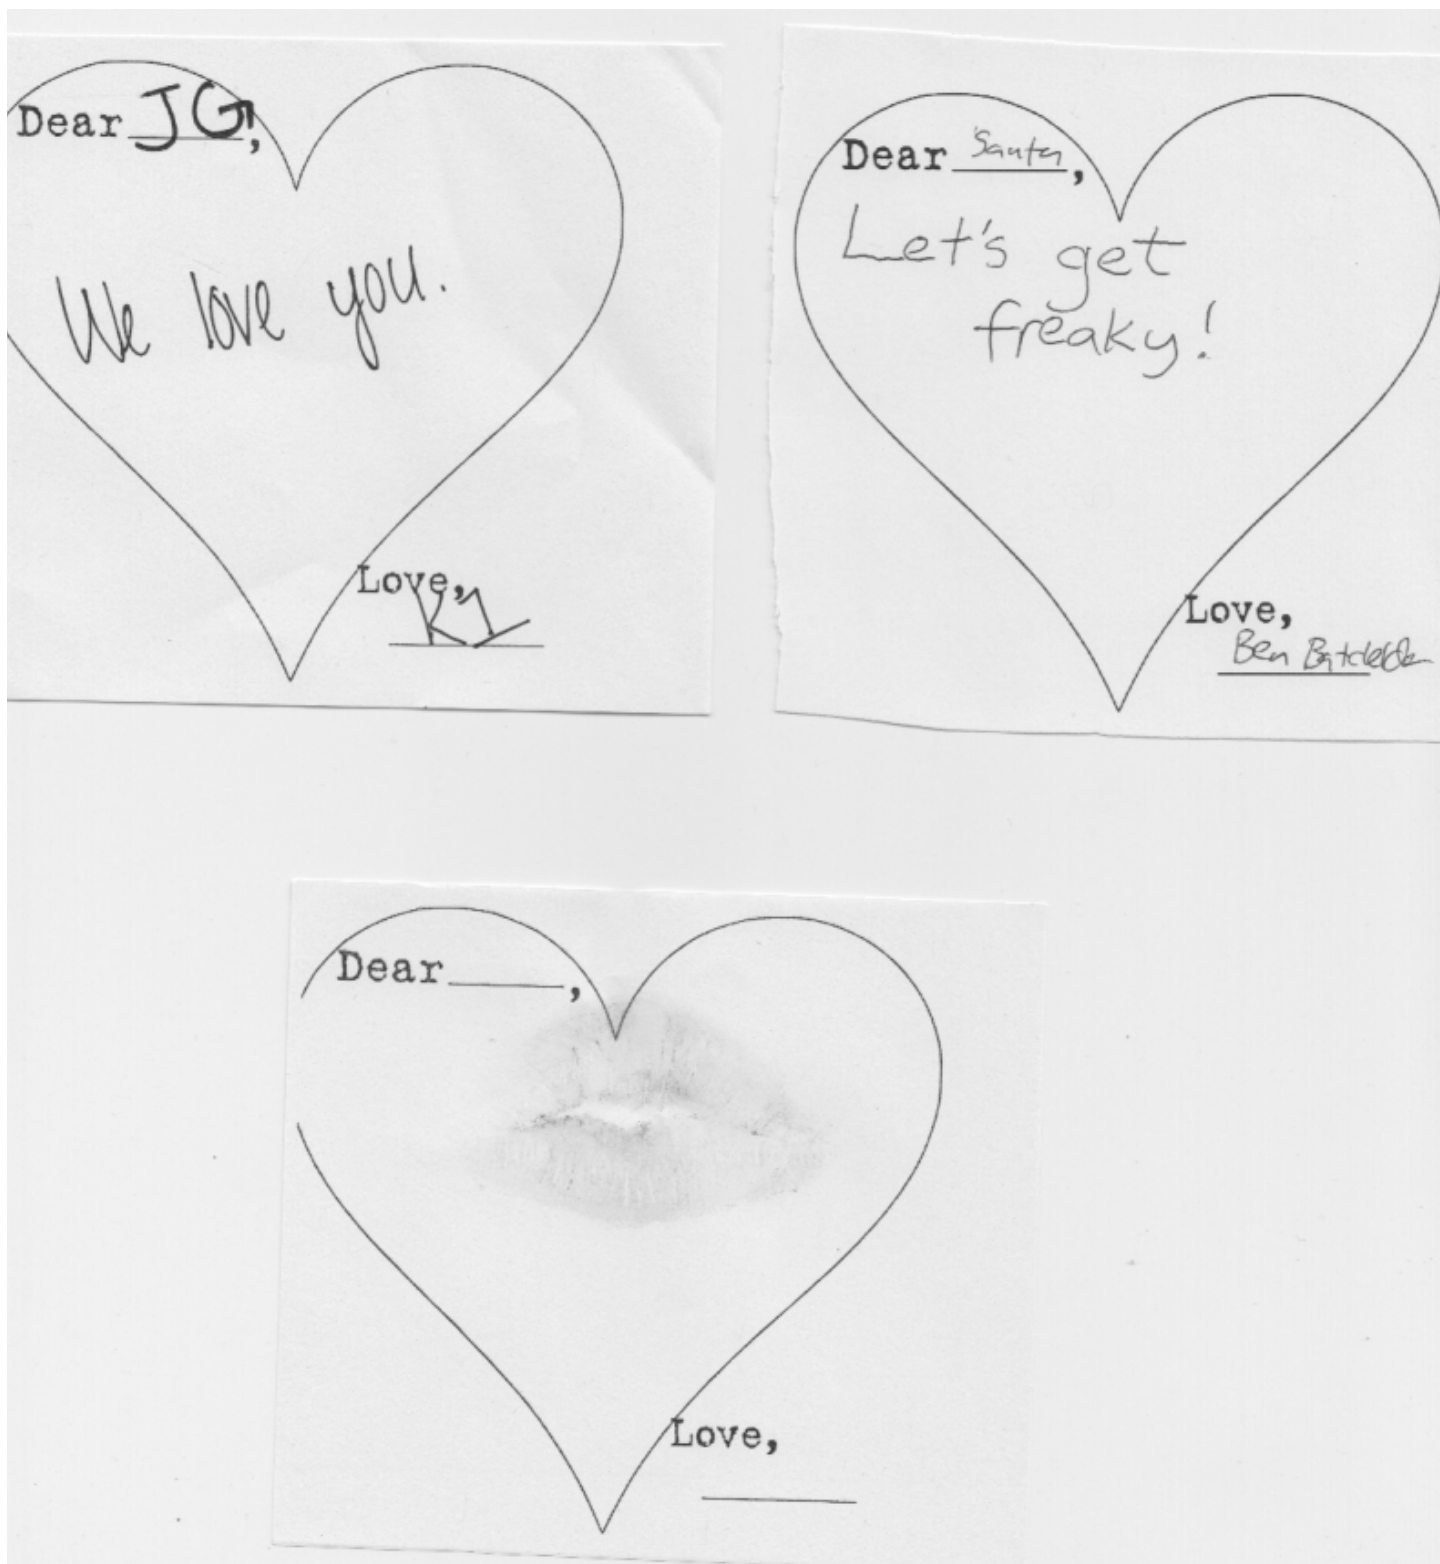 Dear JG,
We love you.
Love,
Dear Santa,
Let's get
freaky!
Love,
Ben
Dear ,
Love,